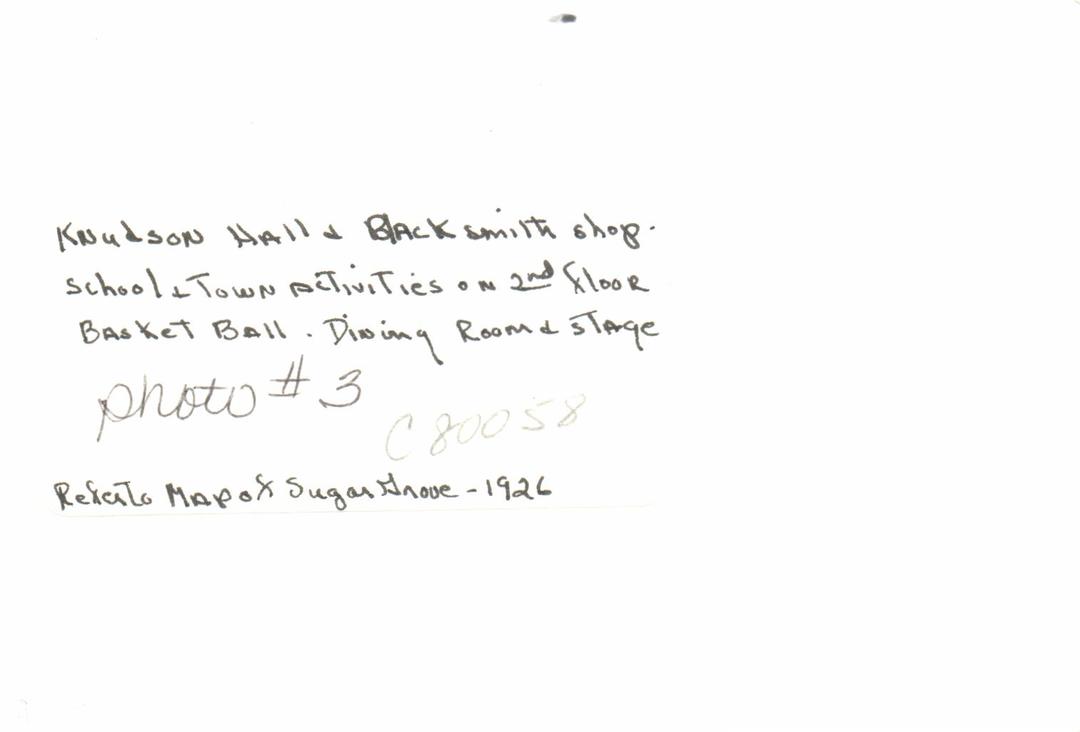 Knudson Hall & Blacksmith shop.
School & Town Activities on 2nd floor
Basket Ball. Dining Room & stage
photo # 3
C80058
Refer to Map of Sugar Grove - 1926